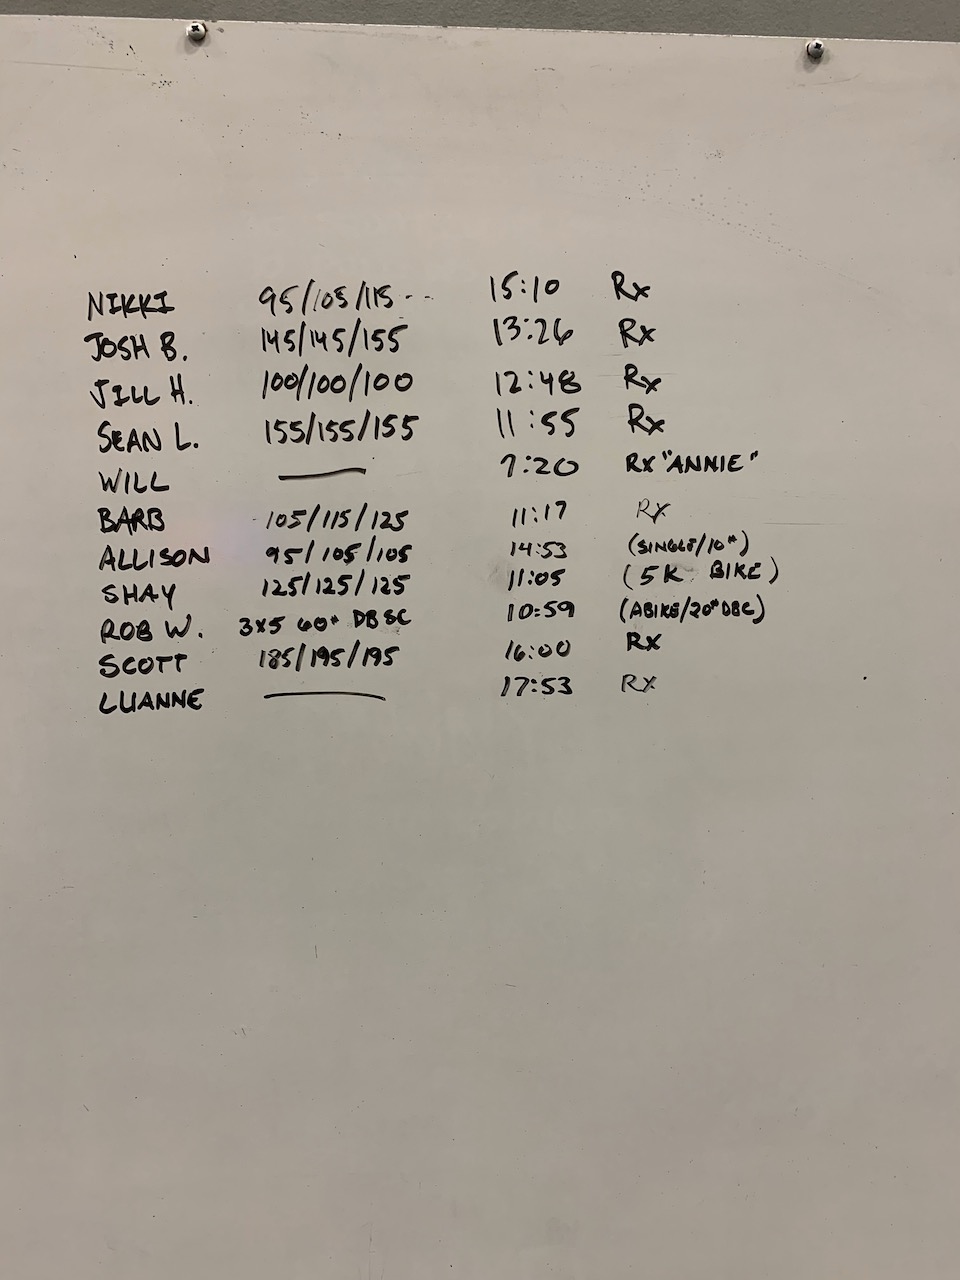 NIKKI 95/105/115 -- 15:10 Rx
JOSH B. 145/145/155 13:26 Rx
JILL H. 100/100/100 12:48 Rx
SEAN L. 155/155/155 11:55 Rx
WILL — 7:20 RX "ANNIE"
BARB 105/115/125 11:17 RX
ALLISON 95/105/105 14:53 (SINGLES/10#)
SHAY 125/125/125 11:05 (5K BIKE)
ROB W. 3x5 60# DB SC 10:59 (ABIKE/20#DBC)
SCOTT 185/195/195 16:00 RX
LUANNE — 17:53 RX